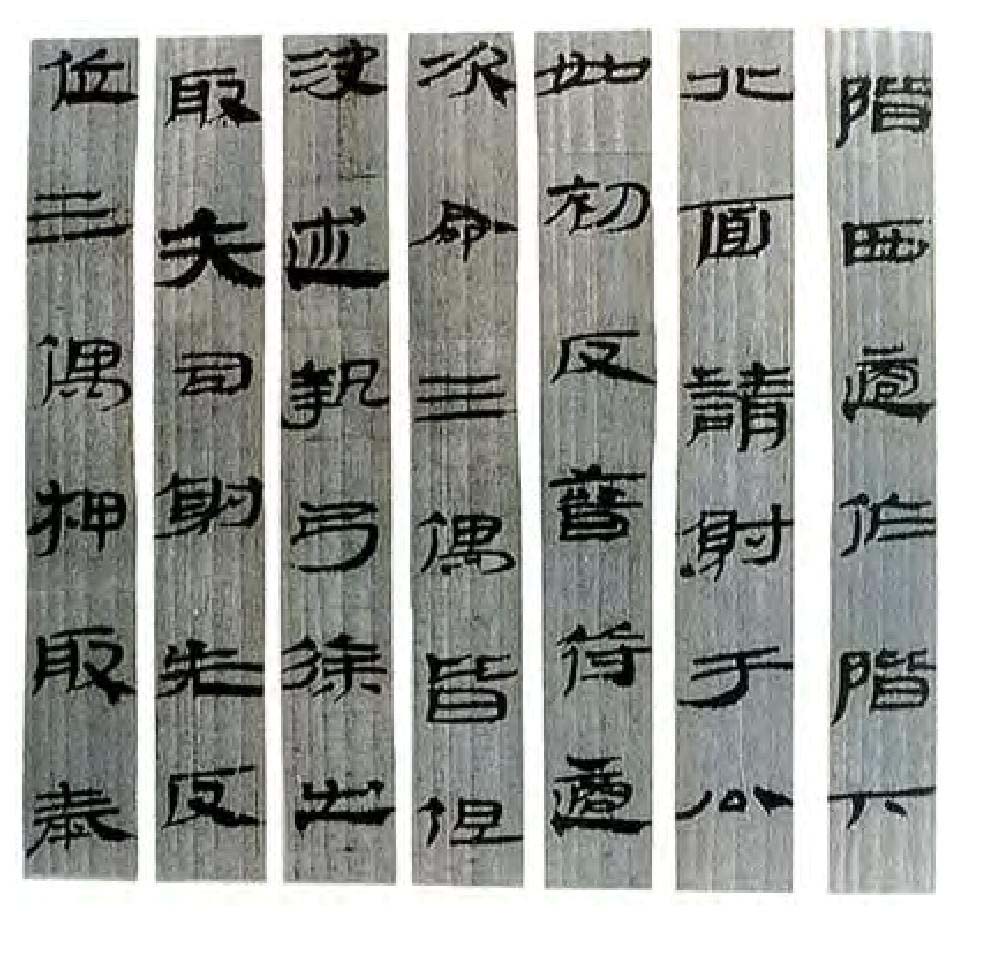 階西適阼階下
北面請射于公
如初反晉符適
次命三偶皆但
決述執弓徐出
取矢司射先反
位三偶柙取泰